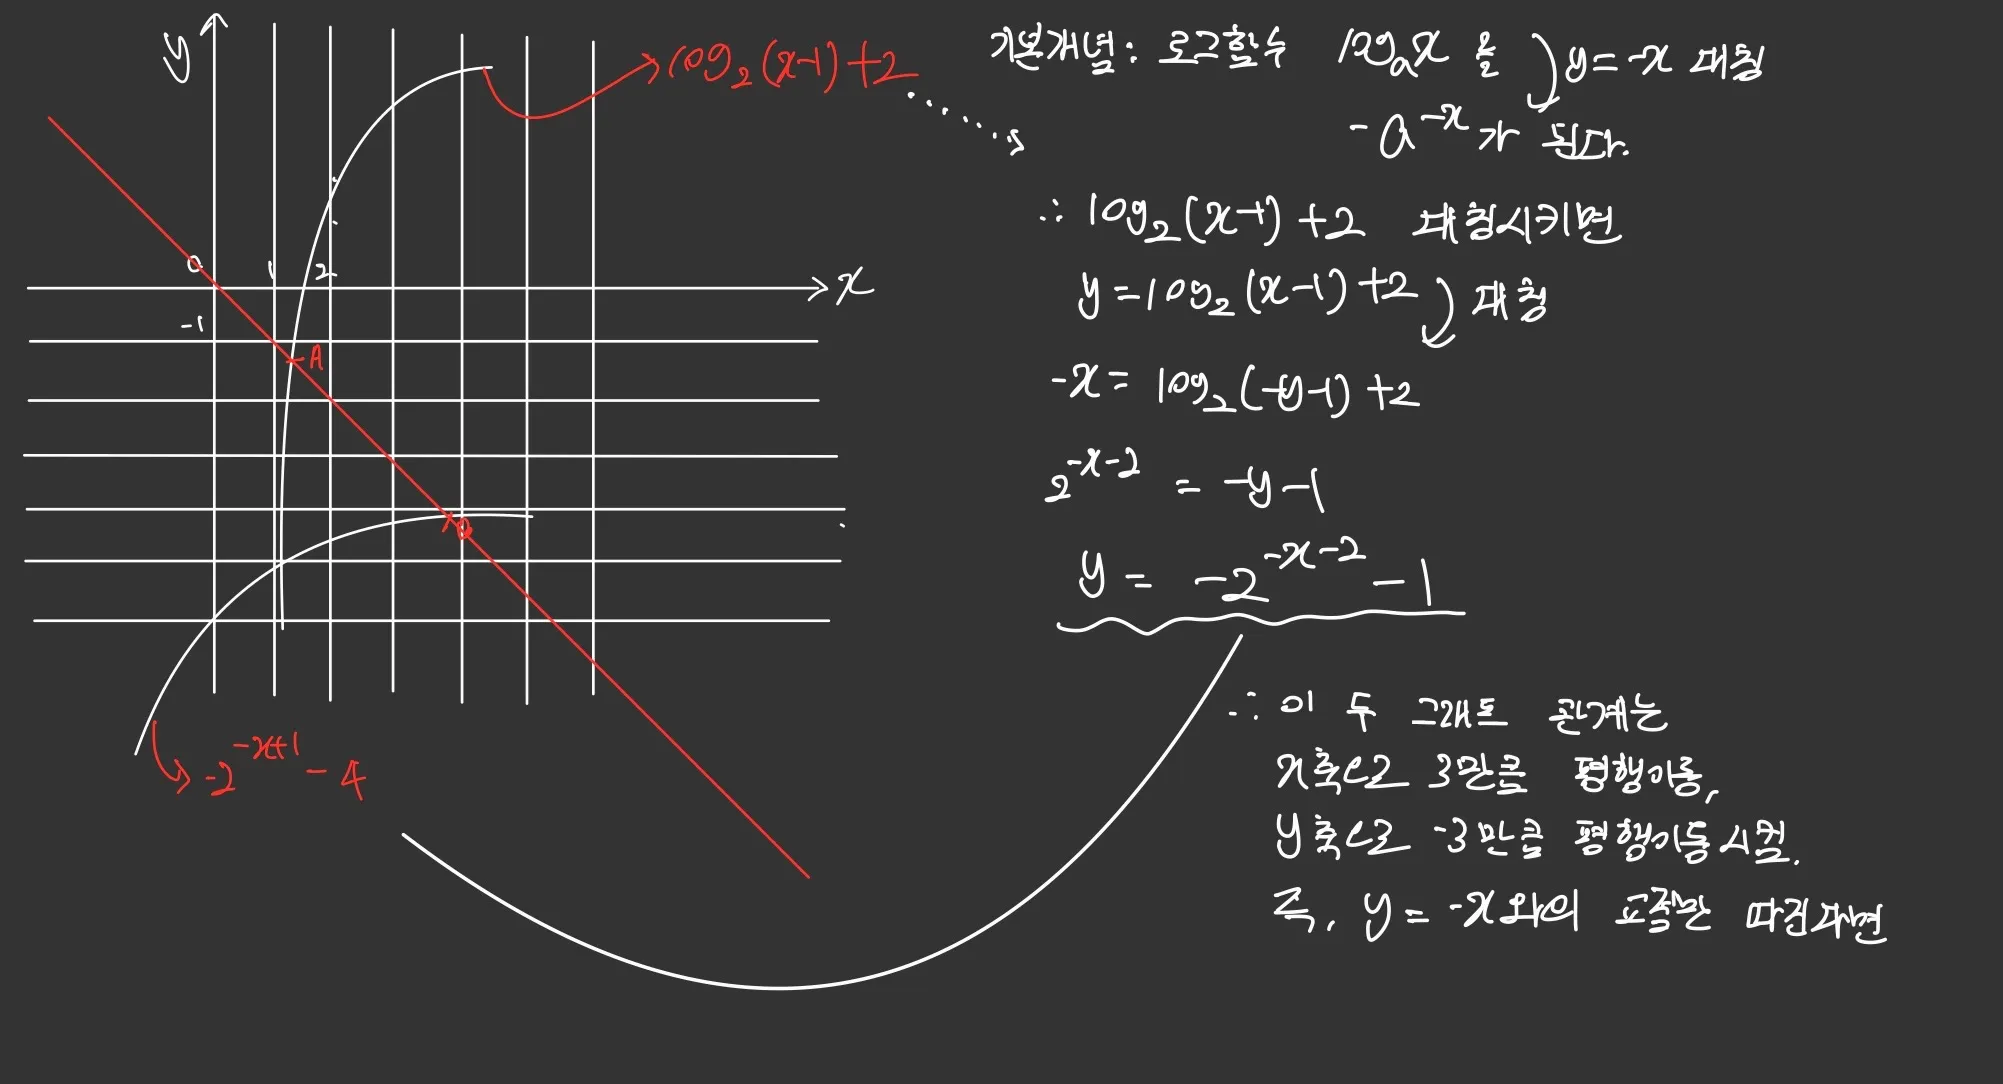 y
log₂(x-1)+2
0 1 2
x
-1
A
B
-2^(-x+1) - 4
기본개념: 로그함수 logₐx 을
y=-x 대칭
-a^(-x)가 된다.
∴ log₂(x-1)+2 대칭시키면
y=log₂(x-1)+2
대칭
-x = log₂(-y-1)+2
2^(-x-2) = -y-1
y = -2^(-x-2) - 1
∴ 이 두 그래프 관계는
x축으로 3만큼 평행이동,
y축으로 -3만큼 평행이동시킴.
즉, y=-x와의 교점만 따진다면